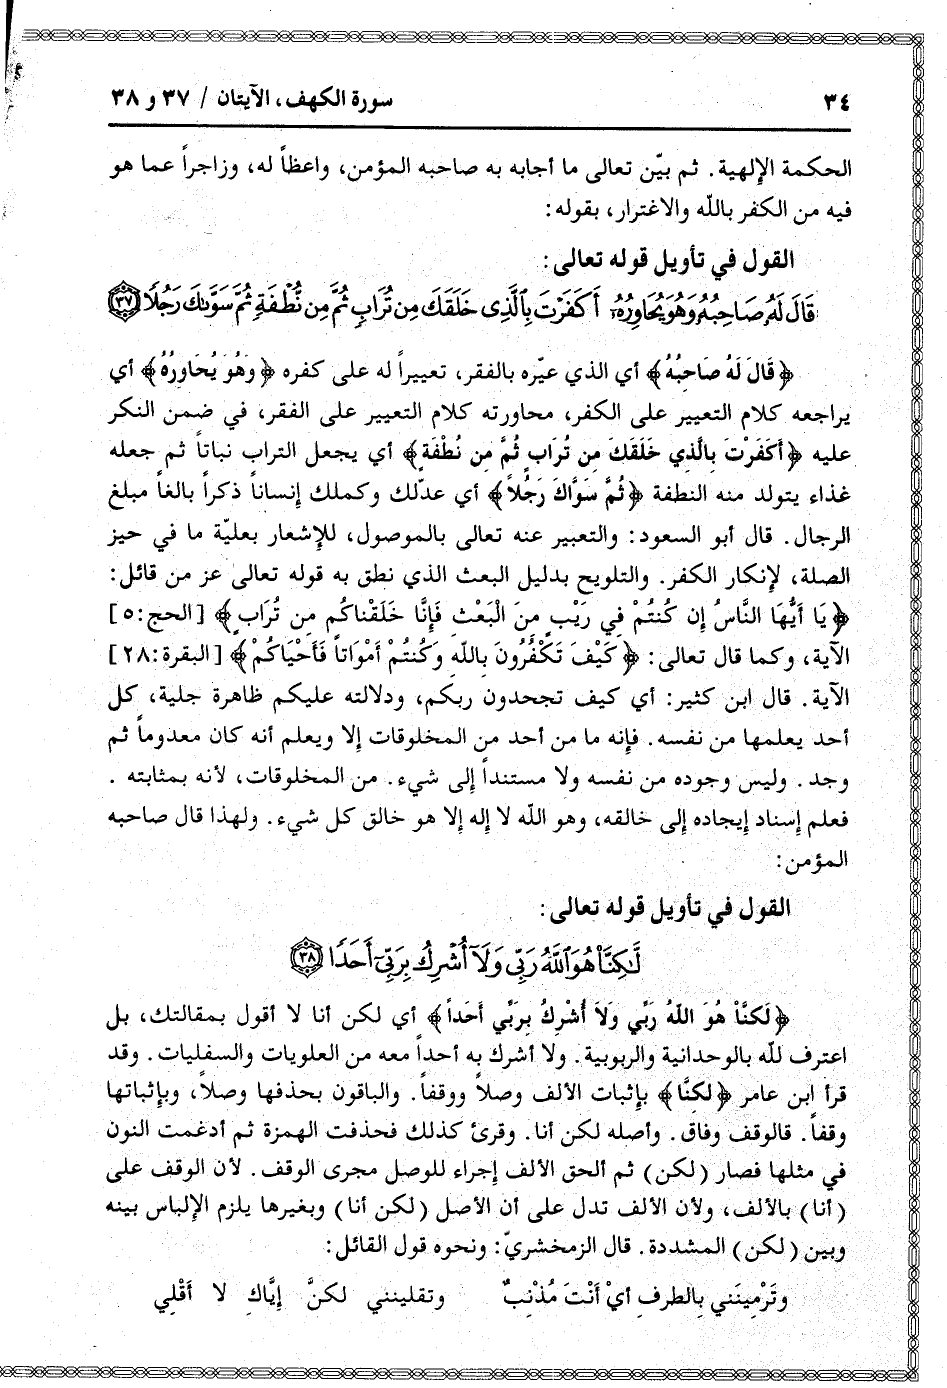 ٣٤
سورة الكهف، الآيتان / ٣٧ و ٣٨
الحكمة الإلهية. ثم بيّن تعالى ما أجابه به صاحبه المؤمن، واعظاً له، وزاجراً عما هو
فيه من الكفر باللّه والاغترار، بقوله:
القول في تأويل قوله تعالى:
قَالَ لَهُۥ صَاحِبُهُۥ وَهُوَ يُحَاوِرُهُۥٓ أَكَفَرْتَ بِٱلَّذِى خَلَقَكَ مِن تُرَابٍ ثُمَّ مِن نُّطْفَةٍ ثُمَّ سَوَّىٰكَ رَجُلًا ٣٧
﴿قَالَ لَهُ صَاحِبُهُ﴾ أي الذي عيّره بالفقر، تعييراً له على كفره ﴿وَهُوَ يُحَاوِرُهُ﴾ أي
يراجعه كلام التعيير على الكفر، محاورته كلام التعيير على الفقر، في ضمن النكر
عليه ﴿أَكَفَرْتَ بِالَّذِي خَلَقَكَ مِن تُرَابٍ ثُمَّ مِن نُطْفَةٍ﴾ أي يجعل التراب نباتاً ثم جعله
غذاء يتولد منه النطفة ﴿ثُمَّ سَوَّاكَ رَجُلاً﴾ أي عدّلك وكملك إنساناً ذكراً بالغاً مبلغ
الرجال. قال أبو السعود: والتعبير عنه تعالى بالموصول، للإشعار بعليّة ما في حيز
الصلة، لإنكار الكفر. والتلويح بدليل البعث الذي نطق به قوله تعالى عز من قائل:
﴿يَا أَيُّهَا النَّاسُ إِن كُنتُمْ فِي رَيْبٍ مِنَ الْبَعْثِ فَإِنَّا خَلَقْنَاكُم مِن تُرَابٍ﴾ [الحج:٥]
الآية، وكما قال تعالى: ﴿كَيْفَ تَكْفُرُونَ بِاللّهِ وَكُنتُمْ أَمْوَاتاً فَأَحْيَاكُمْ﴾ [البقرة:٢٨]
الآية. قال ابن كثير: أي كيف تجحدون ربكم، ودلالته عليكم ظاهرة جلية، كل
أحد يعلمها من نفسه. فإنه ما من أحد من المخلوقات إلا ويعلم أنه كان معدوماً ثم
وجد. وليس وجوده من نفسه ولا مستنداً إلى شيء. من المخلوقات، لأنه بمثابته .
فعلم إسناد إيجاده إلى خالقه، وهو اللّه لا إله إلا هو خالق كل شيء. ولهذا قال صاحبه
المؤمن:
القول في تأويل قوله تعالى:
لَّٰكِنَّا۠ هُوَ ٱللَّهُ رَبِّى وَلَآ أُشْرِكُ بِرَبِّىٓ أَحَدًا ٣٨
﴿لَكِنَّاْ هُوَ اللّهُ رَبِّي وَلاَ أُشْرِكُ بِرَبِّي أَحَداً﴾ أي لكن أنا لا أقول بمقالتك، بل
اعترف للّه بالوحدانية والربوبية. ولا أشرك به أحداً معه من العلويات والسفليات. وقد
قرأ ابن عامر ﴿لكِنَّا﴾ بإثبات الألف وصلاً ووقفاً. والباقون بحذفها وصلاً، وبإثباتها
وقفاً. قالوقف وفاق. وأصله لكن أنا. وقرئ كذلك فحذفت الهمزة ثم أدغمت النون
في مثلها فصار (لكن) ثم ألحق الألف إجراء للوصل مجرى الوقف. لأن الوقف على
(أنا) بالألف، ولأن الألف تدل على أن الأصل (لكن أنا) وبغيرها يلزم الإلباس بينه
وبين (لكن) المشددة. قال الزمخشريّ: ونحوه قول القائل:
وتَرْمِينَني بِالطرفِ أيْ أَنْتَ مُذْنِبٌ وتقلينني لكنَّ إِيَّاكِ لا أَقْلِي